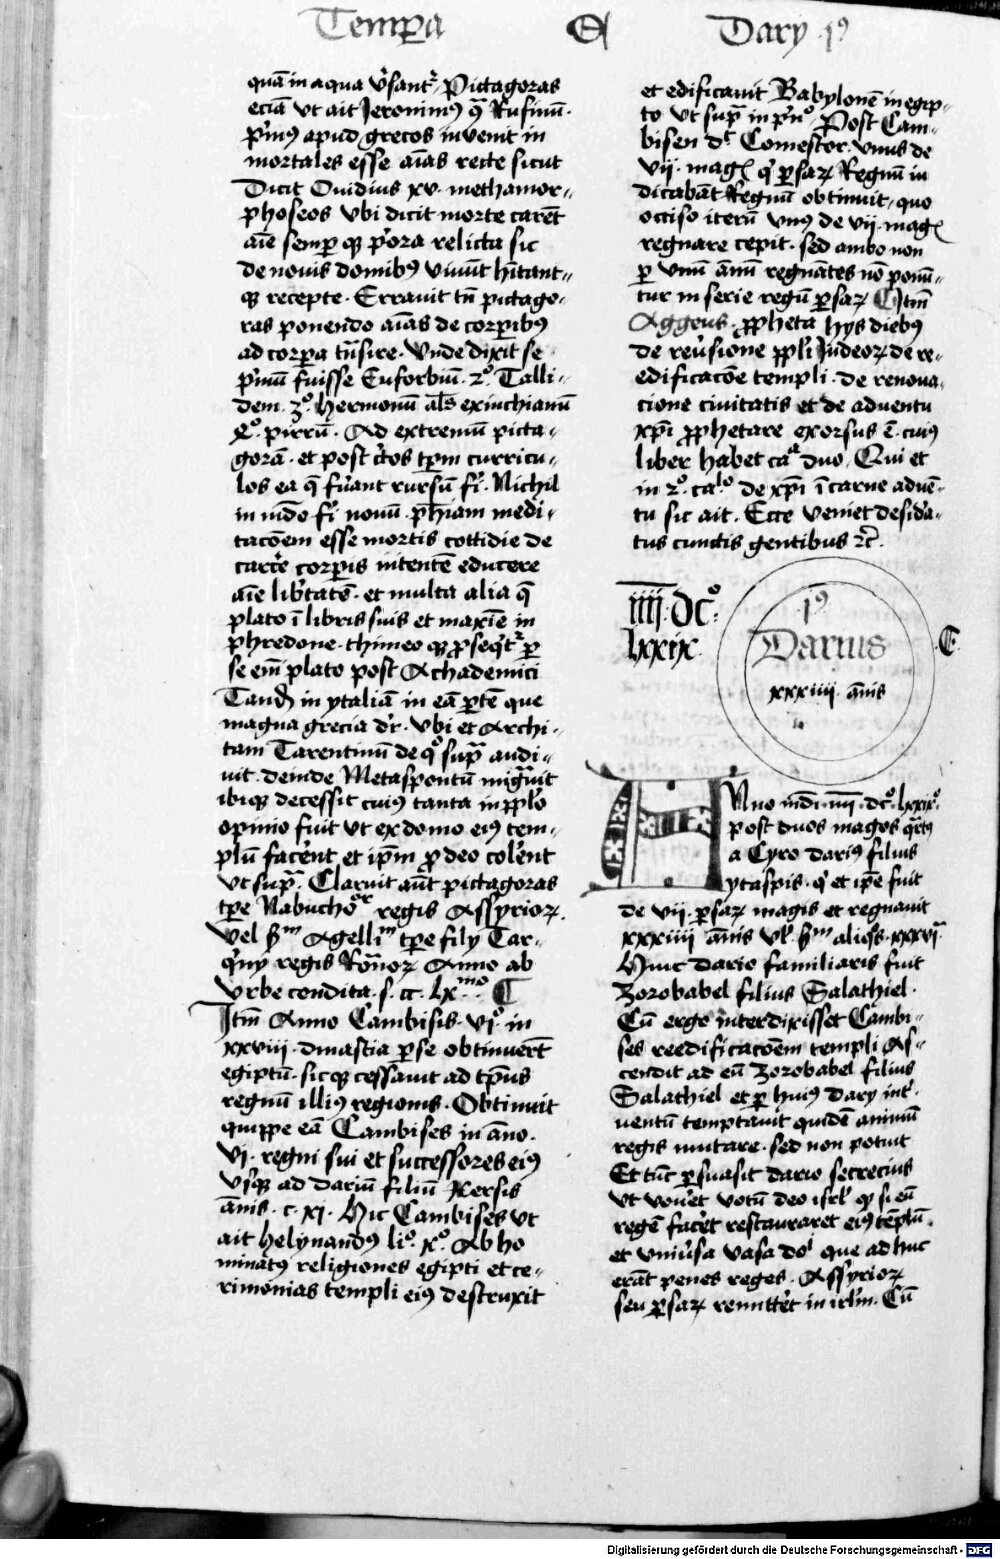 Temꝑa Et Dary ·1ꝰ
quā in aqua v̓sant᷑. Pictagoras
eciā vt ait Jeronimꝰ ꝗ̄ Rufinū·
pͥmꝰ apud grecos invenit in
mortales esse aīas recte sicut
Dicit Ouidius xv· methamor-
phoseos vbi dicit morte carēt
aīe semꝑ qꝫ pͥora relicta sic
de nouis domibꝰ viuūt hītant-
qꝫ recepte· Errauit tn̄ pictago-
ras ponendo aīas de corꝑibꝰ
ad corꝑa tn̄sire· Vnde dixit se
pͥmū fuisse Euforbiū· 2ͦ· Talli-
dem· 3ͦ· hermonū als̄ exinchianū
4ͦ· pirrū· Ad extremū picta-
gorā· et post c̓tos tꝑm curricu-
los ea ꝗ̄ fu̓ant rursū fi̓· Nichil
in mōdo fi̓ nouū· ph̄iam medi-
tacōem esse mortis cottidie de
carc̓e corꝑis nitentē educere
aīe lib̓tatē· et multa alia ꝗ̄
plato ī libris suis et maxīe in
phredone· thimeo qꝫ ꝓseqͥt᷑ ꝑ
se em̄ plato post Achademici
Tandē in ytaliā in eā ꝑtē que
magna grecia dr̄· vbi et Archi-
tam Tarentinū de qͦ supͣ audi-
uit· deinde Metaspontū migͣuit
ibiqꝫ decessit cuiꝰ tanta in ppl̓o
opinio fuit vt ex domo eiꝰ tem-
plū fac̓ent et ip̄m ꝓ deo col̓ent
vt supͣ· Claruit aūt pictagoras
tꝑe Nabuchoͬ regis Assyrioꝝ·
vel ẜm Agelliͫ tꝑe fily Tar-
qͥny regis Rōnoꝝ Anno ab
vrbe condita· s· cc· lxͫͦ·
Itm̄ Anno Cambisis· viͦ· in
xxviii· dinastia ꝑse obtinuer̄t
egiptū· sicqꝫ cessauit ad tp̄us
regnū illiꝰ regionis· Obtinuit
quippe eā Cambises in āno·
vi· regni sui et successores eiꝰ
vsqꝫ ad dariū filiū Xersis
ānis· c· xi· Hic Cambises vt
ait helynandꝰ liͦ· xͦ· Ab ho
minatꝰ religiones egipti et ce-
rimonias templi eiꝰ destruxit
et edificauit Babylonē in egip-
to vt supͣ in pͥnͦ· Post Cam-
bisen dt̄ Comestor· vnus de
vii· mag̓ qͥ ꝑsaꝝ Regnū in
dicabāt Regnū obtinuit· quo
occiso iterū vnꝰ de vii· mag̓
regnare cepit· sed ambo non
ꝑ vnū ānū regnātes nō ponū-
tur in serie regū ꝑsaꝝ Itm̄
Aggeus· ꝓpheta hys diebꝰ
de reu̓sione ppl̓i Judeoꝝ de re-
edificacōe templi· de renoua-
cione ciuitatis et de aduentu
xp̄i ꝓphetare exorsus ē· cuiꝰ
liber habet caͣ duo· Qui et
in 2ͦ· caͦ de xp̄i ī carne aduē-
tu sic ait· Ecce veniet desid̓a-
tus cunctis gentibus ⁊c̄·
iiii·dcͦ·
lxxix
1ꝰ
Darius
xxxiiii· ānis
ANno mdi· iiii· dcͦ· lxxixͦ·
post duos magos qͣrtꝰ
a Cyro dariꝰ filius
ytaspis· qͥ et ip̄e fuit
de vii· ꝑsaꝝ magis et regnauit
xxxiiii ānis vl̓ ẜm aliqͦs· xxxvi·
Huic dario familiaris fuit
Zorobabel filius Salathiel·
Cū ergo interdixisset Cambi-
ses reedificacōem templi As-
cendit ad eū Zorobabel filius
Salathiel et ꝑ huiꝰ Dary int̓-
uentū temptauit quidē animū
regis mutare· sed non potuit
Et tūc ꝑsuasit dario secrecius
vt vou̓et votū deo isrl̓ qꝫ si eū
regē fac̓et restauraret eiꝰ tēplū·
et vniu̓sa vasa doͥ que adhuc
erāt penes reges· Assyrioꝝ
seu ꝑsaꝝ remitt̓et in irl̓m· Cū
Digitalisierung gefördert durch die Deutsche Forschungsgemeinschaft - DFG